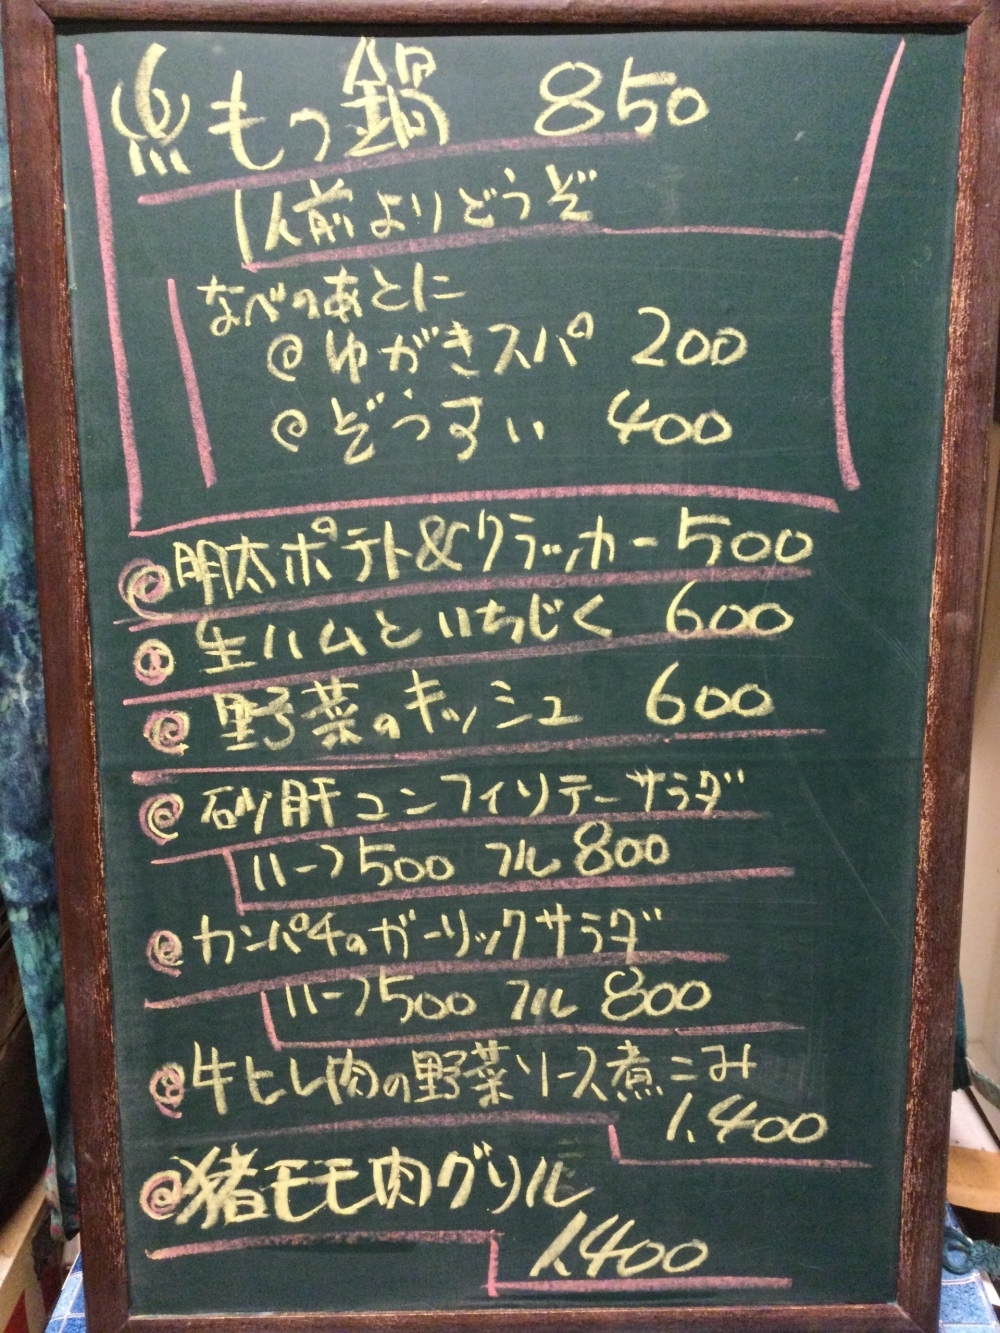 魚もつ鍋 850
1人前よりどうぞ
なべのあとに
@ゆがきスパ 200
@ぞうすい 400
@明太ポテト&クラッカー 500
@生ハムといちじく 600
@野菜のキッシュ 600
@砂肝コンフィソテーサラダ
ハーフ500 フル800
@カンパチのガーリックサラダ
ハーフ500 フル 800
@牛ヒレ肉の野菜ソース煮こみ
1,400
@猪モモ肉グリル
1,400